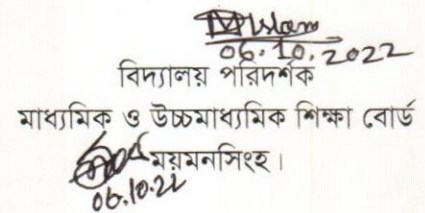 06.10.2022
বিদ্যালয় পরিদর্শক
মাধ্যমিক ও উচ্চমাধ্যমিক শিক্ষা বোর্ড
ময়মনসিংহ।
06.10.22